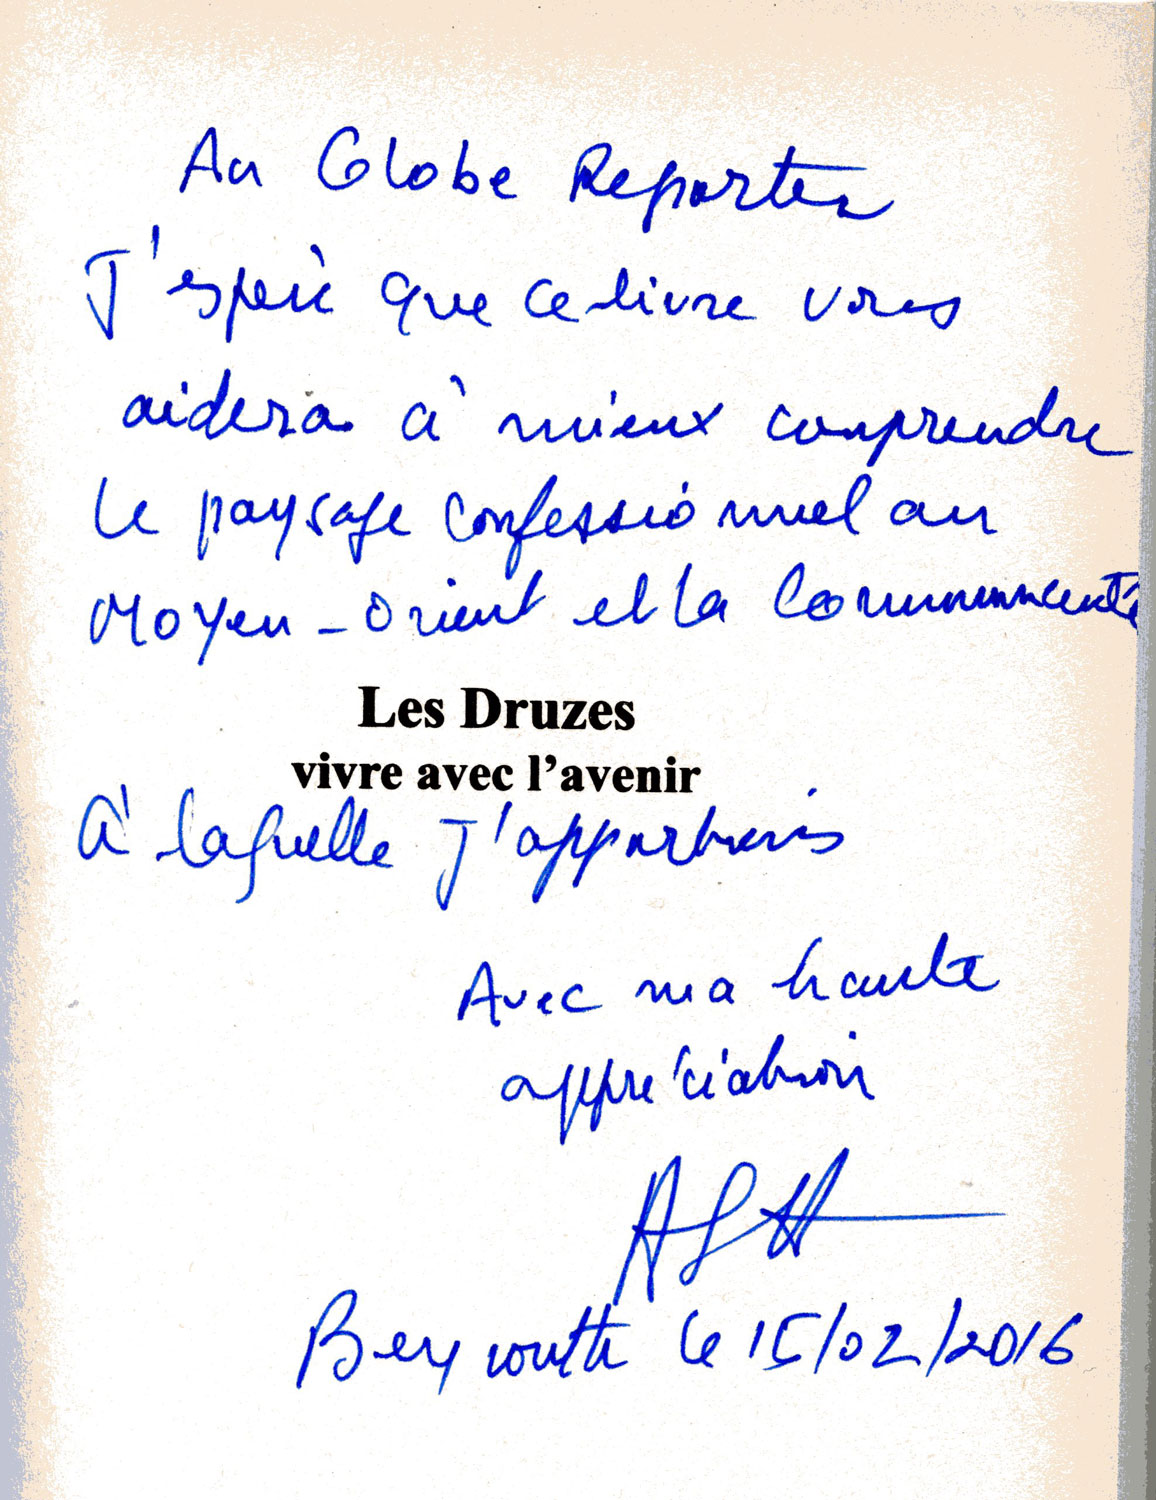 Au Globe Reporter
J'espère que ce livre vous
aidera à mieux comprendre
le paysage confessionnel au
Moyen-Orient et la communauté
Les Druzes
vivre avec l'avenir
à laquelle J'appartiens
Avec ma haute
appréciation
Beyrouth le 15/02/2016